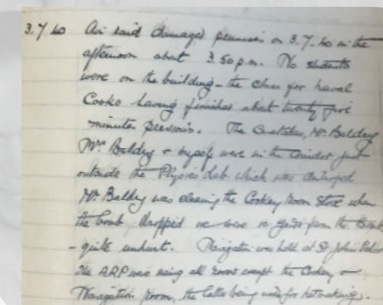 3.7.40 Air raid damaged premises on 3.7.40 in the
afternoon about 3.50 p.m. No students
were on the building - the class for Naval
Cooks having finished about twenty five
minutes previous. The Caretaker, Mr Baldry
Mrs Baldry & myself were in the corridor just
outside the Physics Lab which was damaged
Mr Baldry was cleaning the Cookery Room Stove when
the bomb dropped we were 10 yards from the Bomb
- quite unhurt. Navigation was held at St John
The ARP was using all rooms except the Cookery &
Navigation Room, the latter being used for